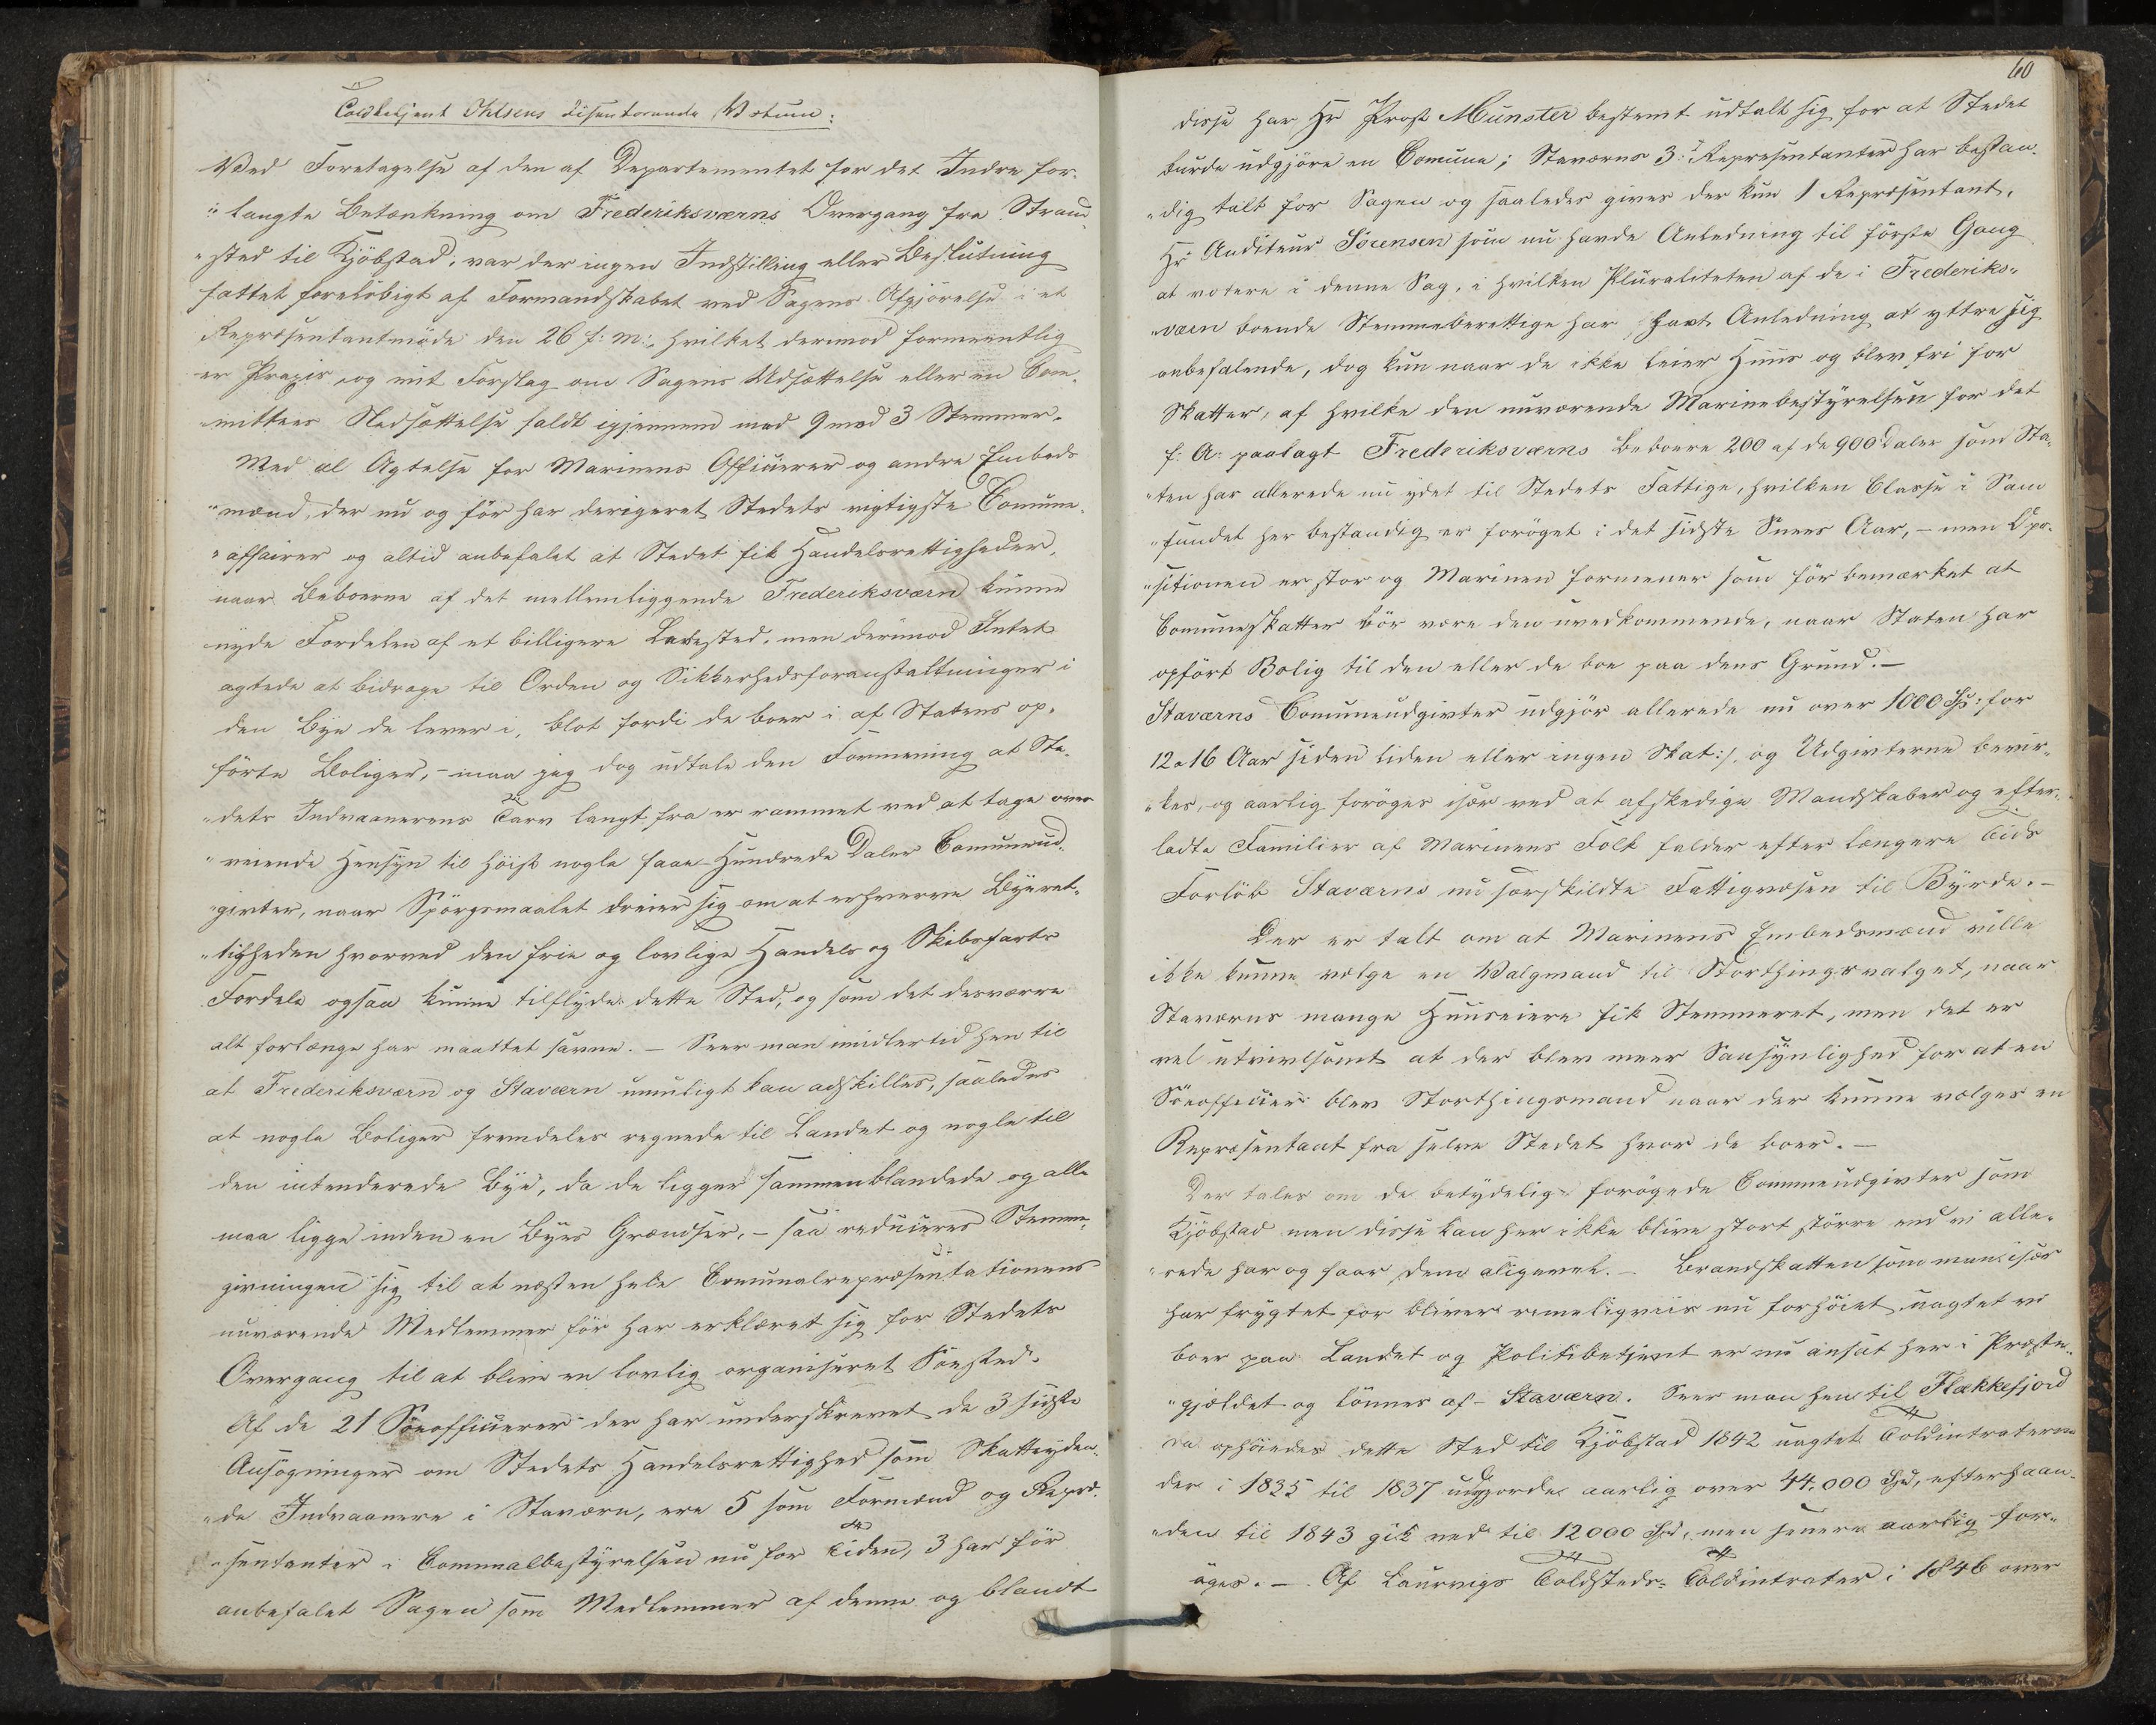 Toldbetjent Ohlsens disentorende Votum:
Ved Foretagelse af den af Departementet for det Indre for-
"langte Betænkning om Frederiksværns Overgang fra Strand-
"sted til Kjöbstad, var der ingen Indstilling eller Beslutning
fattet foreløbigt af Formandskabet ved Sagens Afgjörelse i et
Repræsentantmöde den 26 f: M:, hvilket derimod formeentlig
er Praxis, og mit Forslag om Sagens Udsættelse eller en Com-
"mittees Nedsættelse faldt igjennem med 9 mod 3 Stemmer.
Med al Agtelse for Marinens Officierer og andre Embeds
"mænd, der nu og för har derigeret Stedets vigtigste Comune-
"affairer og altid anbefalet at Stedet fik Handelsrettigheder,
naar Beboerne af det mellemliggende Frederiksværn kunne
nyde Fordelen af et billigere Ladested, men derimod Intet
agtede at bidrage til Orden og Sikkerhedsforanstaltninger i
den Bye de lever i, blot fordi de boer i af Statens op-
förte Boliger, - maa jeg dog udtale den Formening at Ste-
"dets Indvaaneres Tarv langt fra er rammet ved at tage over
"veiende Hensyn til höist nogle faae Hundrede Daler Comuneud-
"givter, naar Spörgsmaalet dreier sig om at erhverve Byeret-
"tigheden hvorved den frie og lovlige Handels og Skibsfarts
Fordele ogsaa kunne tilflyde dette Sted, og som det desværre
alt forlænge har maattet savne. - Seer man imidlertid hen til
at Frederiksværn og Staværn umuligt kan adskilles, saaledes
at nogle Boliger fremdeles regnede til Landet og nogle til
den intenderede Bye, da de ligger sammenblandede og alle
maa ligge inden en Byes Grændser, - saa reduceres Stemme-
givningen sig til at næsten hele Comunalrepræsentationens
nuværende Medlemmer för har erklæret sig for Stedets
Overgang til at blive en lovlig organiseret Söested.
Af de 21 Söeofficierer der har underskrevet de 3 sidste
Ansögninger om Stedets Handelsrettighed som Skatteyden-
"de Indvaanere i Staværn, ere 5 som Formænd og Repræ-
"sentanter i Comunalbestyrelsen nu for Tiden, 3 har för
anbefalet Sagen som Medlemmer af denne og blandt
60
disse har Hr Prost Münster bestemt udtalt sig for at Stedet
burde udgjöre en Comune; Staværns 3: Representanter har bestan-
"dig talt for Sagen og saaledes gives der kun 1 Repræsentant,
Hr: Auditeur Sörensen som nu havde Anledning til förste Gang
at votere i denne Sag, i hvilken Pluraliteten af de i Frederiks-
"værn boende Stemmeberettige har havt Anledning at yttre sig
anbefalende, dog kun naar de ikke leier Huus og blev fri for
Skatter, af hvilke den nuværende Marinebestyrelsen for det
f: A: paalagt Frederiksværns Beboere 200 af de 900 Daler som Sta-
"ten har allerede nu ydet til Stedets Fattige, hvilken Classe i Sam
"fundet her bestandig er foröget i det sidste Snees Aar, - men Opo-
"sitionen er stor og Marinen formener som för bemærket at
Comuneskatter bör være den uvedkommende, naar Staten har
opfört Bolig til den eller de boe paa dens Grund. -
Staværns Comuneudgivter udgjör allerede nu over 1000 Spd: for
12 a 16 Aar siden liden eller ingen Skat:/. og Udgivterne bevir-
"kes, og aarlig foröges især ved at afskedige Mandskaber og efter-
ladte Familier af Marinens Folk falder efter længere Tids
Forlöb Staværns nu særskildte Fattigvæsen til Byrde. -
Der er talt om at Marinens Embedsmænd ville
ikke kunne vælge en Valgmand til Storthingsvalget, naar
Staværns mange Huuseiere fik Stemmeret, men det er
vel utvivlsomt at der blev meer Sansynlighed for at en
Söeofficier blev Storthingsmand naar der kunne vælges en
Repræsentant fra selve Stedet hvor de boer. -
Der tales om de betydelige forögede Comuneudgivter som
Kjöbstad men disse kan her ikke blive stort större end vi alle-
"rede har og faar dem aligevel. - Brandskatten som man især
har frygtet for bliver rimeligviis nu forhöiet uagtet vi
boer paa Landet og Politibetjent er nu ansat her i Præste-
"gjeldet og lönnes af Staværn. Seer man hen til Flækkefjord
da ophöiedes dette Sted til Kjöbstad 1842 uagtet Toldintraterne
der i 1835 til 1837 udgjorde aarlig over 44,000 Spd, efterhaan-
"den til 1843 gik ned til 12000 Spd, men senere aarlig for-
öges. - Af Laurvigs Toldsteds Toldintrater i 1846 over